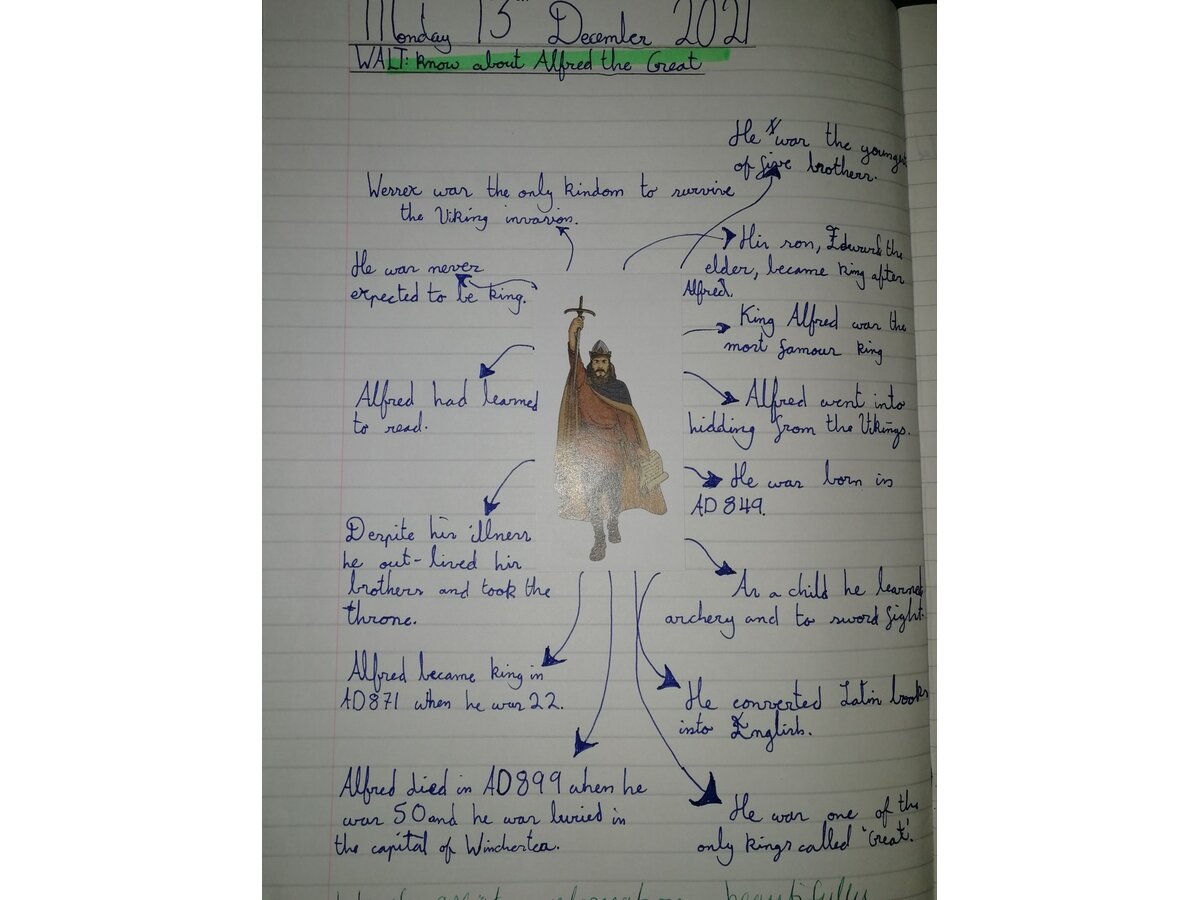 Monday 13th December 2021
WALT: Know about Alfred the Great
He was the youngest
of five brothers.
Wessex was the only kindom to survive
the Viking invasion.
His son, Edward the
elder, became king after
Alfred.
He was never
expected to be king.
King Alfred was the
most famous king
Alfred had learned
to read.
Alfred went into
hidding from the Vikings.
He was born in
AD 849.
Despite his illness
he out-lived his
brothers and took the
throne.
As a child he learned
archery and to sword fight.
Alfred became king in
AD871 when he was 22.
He converted Latin books
into English.
Alfred died in AD899 when he
was 50 and he was buried in
the capital of Winchestea.
He was one of the
only kings called 'Great'.
great information beautifully